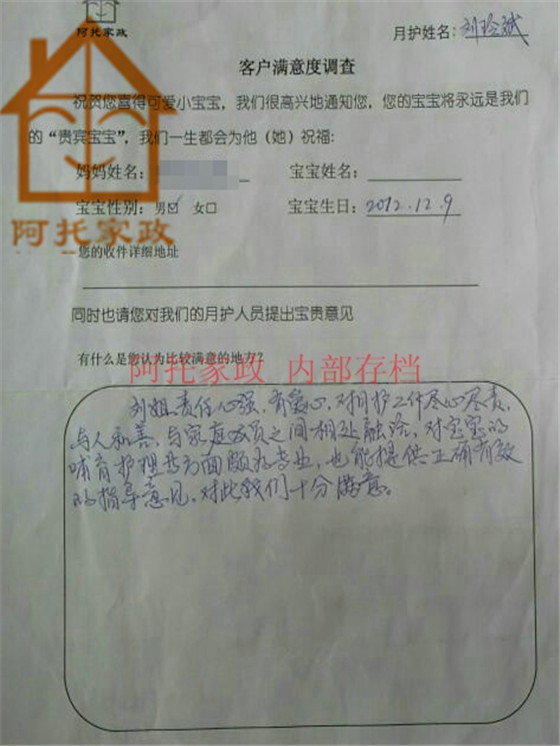 阿托家政
月护姓名：刘玲斌
客户满意度调查
祝贺您喜得可爱小宝宝，我们很高兴地通知您，您的宝宝将永远是我们
的“贵宾宝宝”，我们一生都会为他（她）祝福：
妈妈姓名： 宝宝姓名：
宝宝性别：男☑ 女□ 宝宝生日：2012.12.9
阿托家政
您的收件详细地址
同时也请您对我们的月护人员提出宝贵意见
有什么是您认为比较满意的地方？
阿托家政 内部存档
刘姐责任心强，有爱心，对月护工作尽心尽责，
与人和善，与家庭成员之间相处融洽，对宝宝的
哺育护理等方面颇为专业，也能提供正确有效
的指导意见，对此我们十分满意。